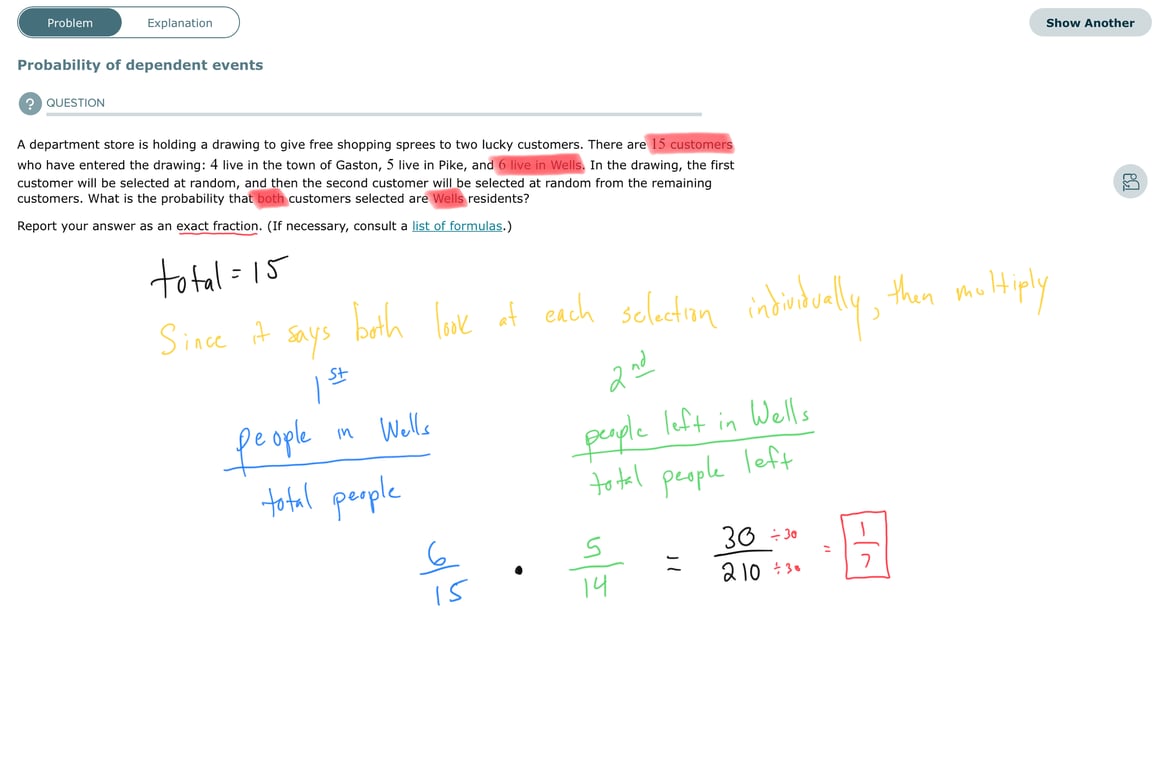 Problem Explanation Show Another
Probability of dependent events
? QUESTION
A department store is holding a drawing to give free shopping sprees to two lucky customers. There are 15 customers
who have entered the drawing: 4 live in the town of Gaston, 5 live in Pike, and 6 live in Wells. In the drawing, the first
customer will be selected at random, and then the second customer will be selected at random from the remaining
customers. What is the probability that both customers selected are Wells residents?
Report your answer as an exact fraction. (If necessary, consult a list of formulas.)
total = 15
Since it says both look at each selection individually, then multiply
1st 2nd
people in Wells people left in Wells
total people total people left
6 5 30 ÷30 1
· = =
15 14 210 ÷30 7